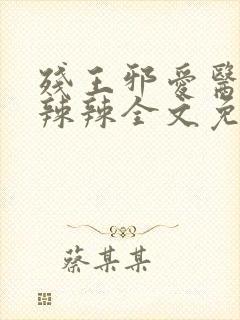 残王邪爱醫
辣辣全文免
蔡某某